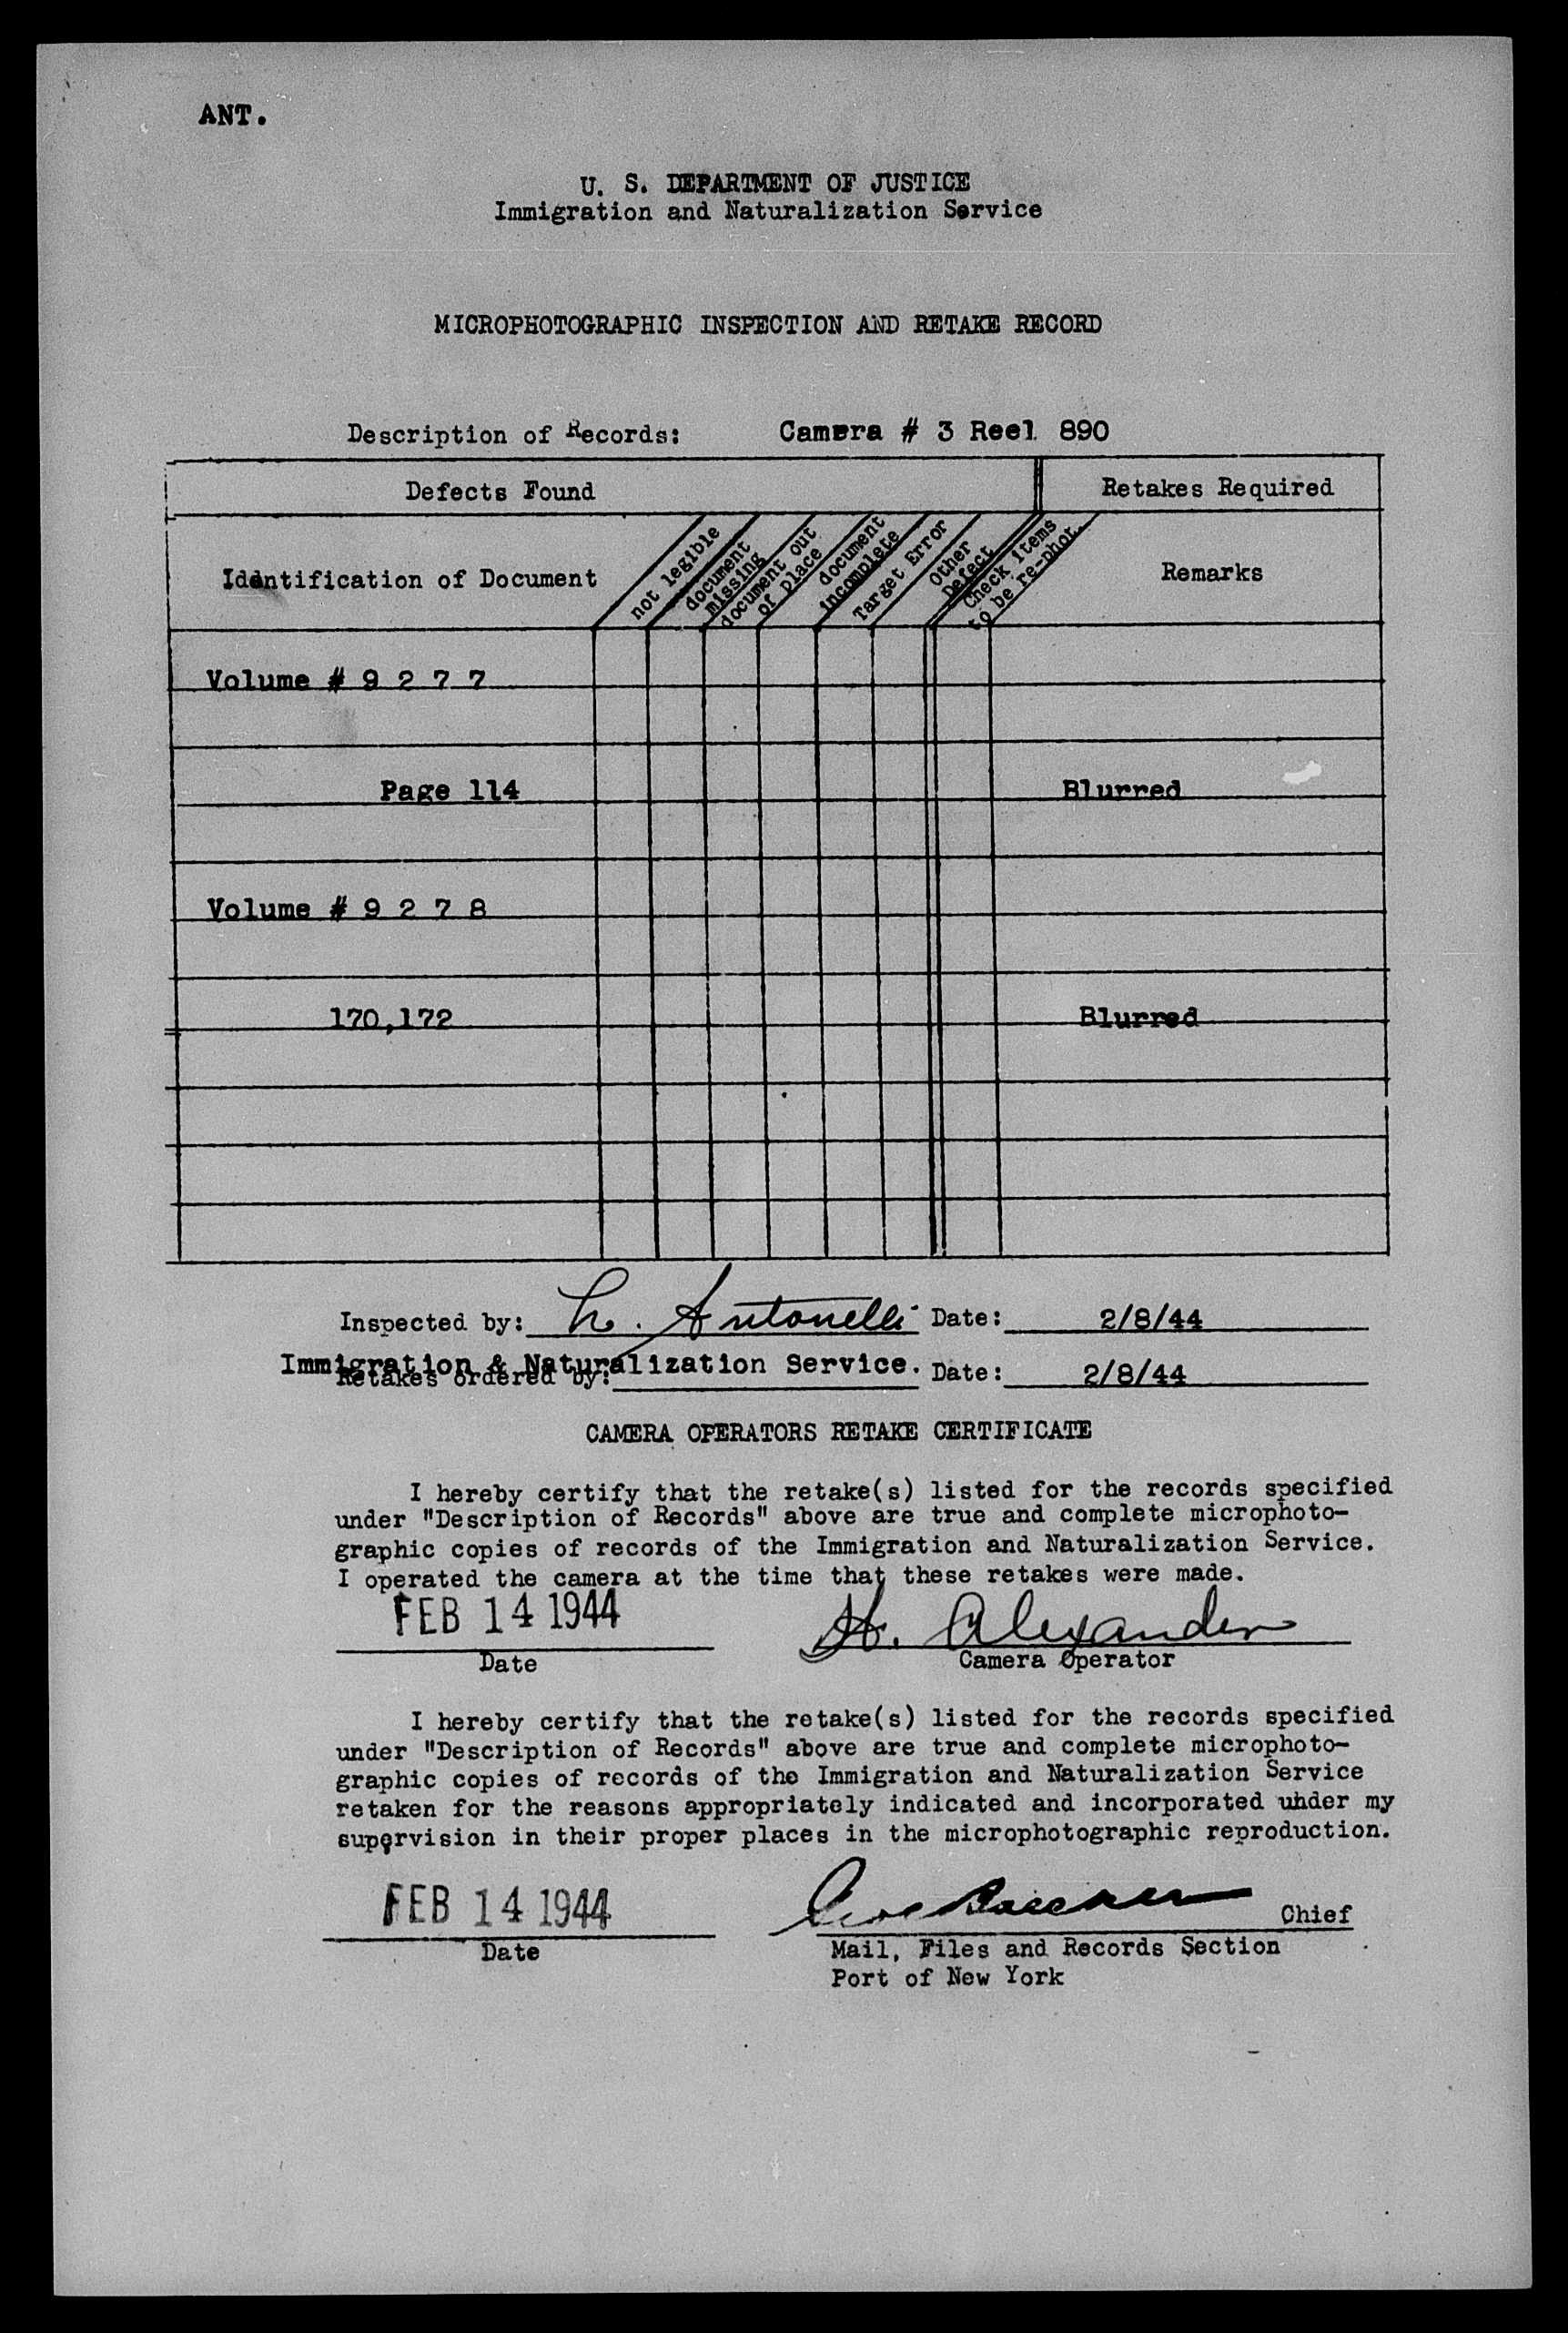 ANT.
U. S. DEPARTMENT OF JUSTICE
Immigration and Naturalization Service
MICROPHOTOGRAPHIC INSPECTION AND RETAKE RECORD
Description of Records: Camera # 3 Reel 890
Defects Found
Retakes Required
Identification of Document
not legible
document missing
document out of place
document incomplete
Target Error
Other Defect
Check items to be re-phot.
Remarks
Volume # 9 2 7 7
Page 114 Blurred
Volume # 9 2 7 8
170,172 Blurred
Inspected by: L. Antonelli Date: 2/8/44
Immigration & Naturalization Service.
Retakes ordered by: Date: 2/8/44
CAMERA OPERATORS RETAKE CERTIFICATE
I hereby certify that the retake(s) listed for the records specified
under "Description of Records" above are true and complete microphoto-
graphic copies of records of the Immigration and Naturalization Service.
I operated the camera at the time that these retakes were made.
FEB 14 1944 H. Alexander
Date Camera Operator
I hereby certify that the retake(s) listed for the records specified
under "Description of Records" above are true and complete microphoto-
graphic copies of records of the Immigration and Naturalization Service
retaken for the reasons appropriately indicated and incorporated under my
supervision in their proper places in the microphotographic reproduction.
FEB 14 1944 Chief
Date Mail, Files and Records Section
Port of New York